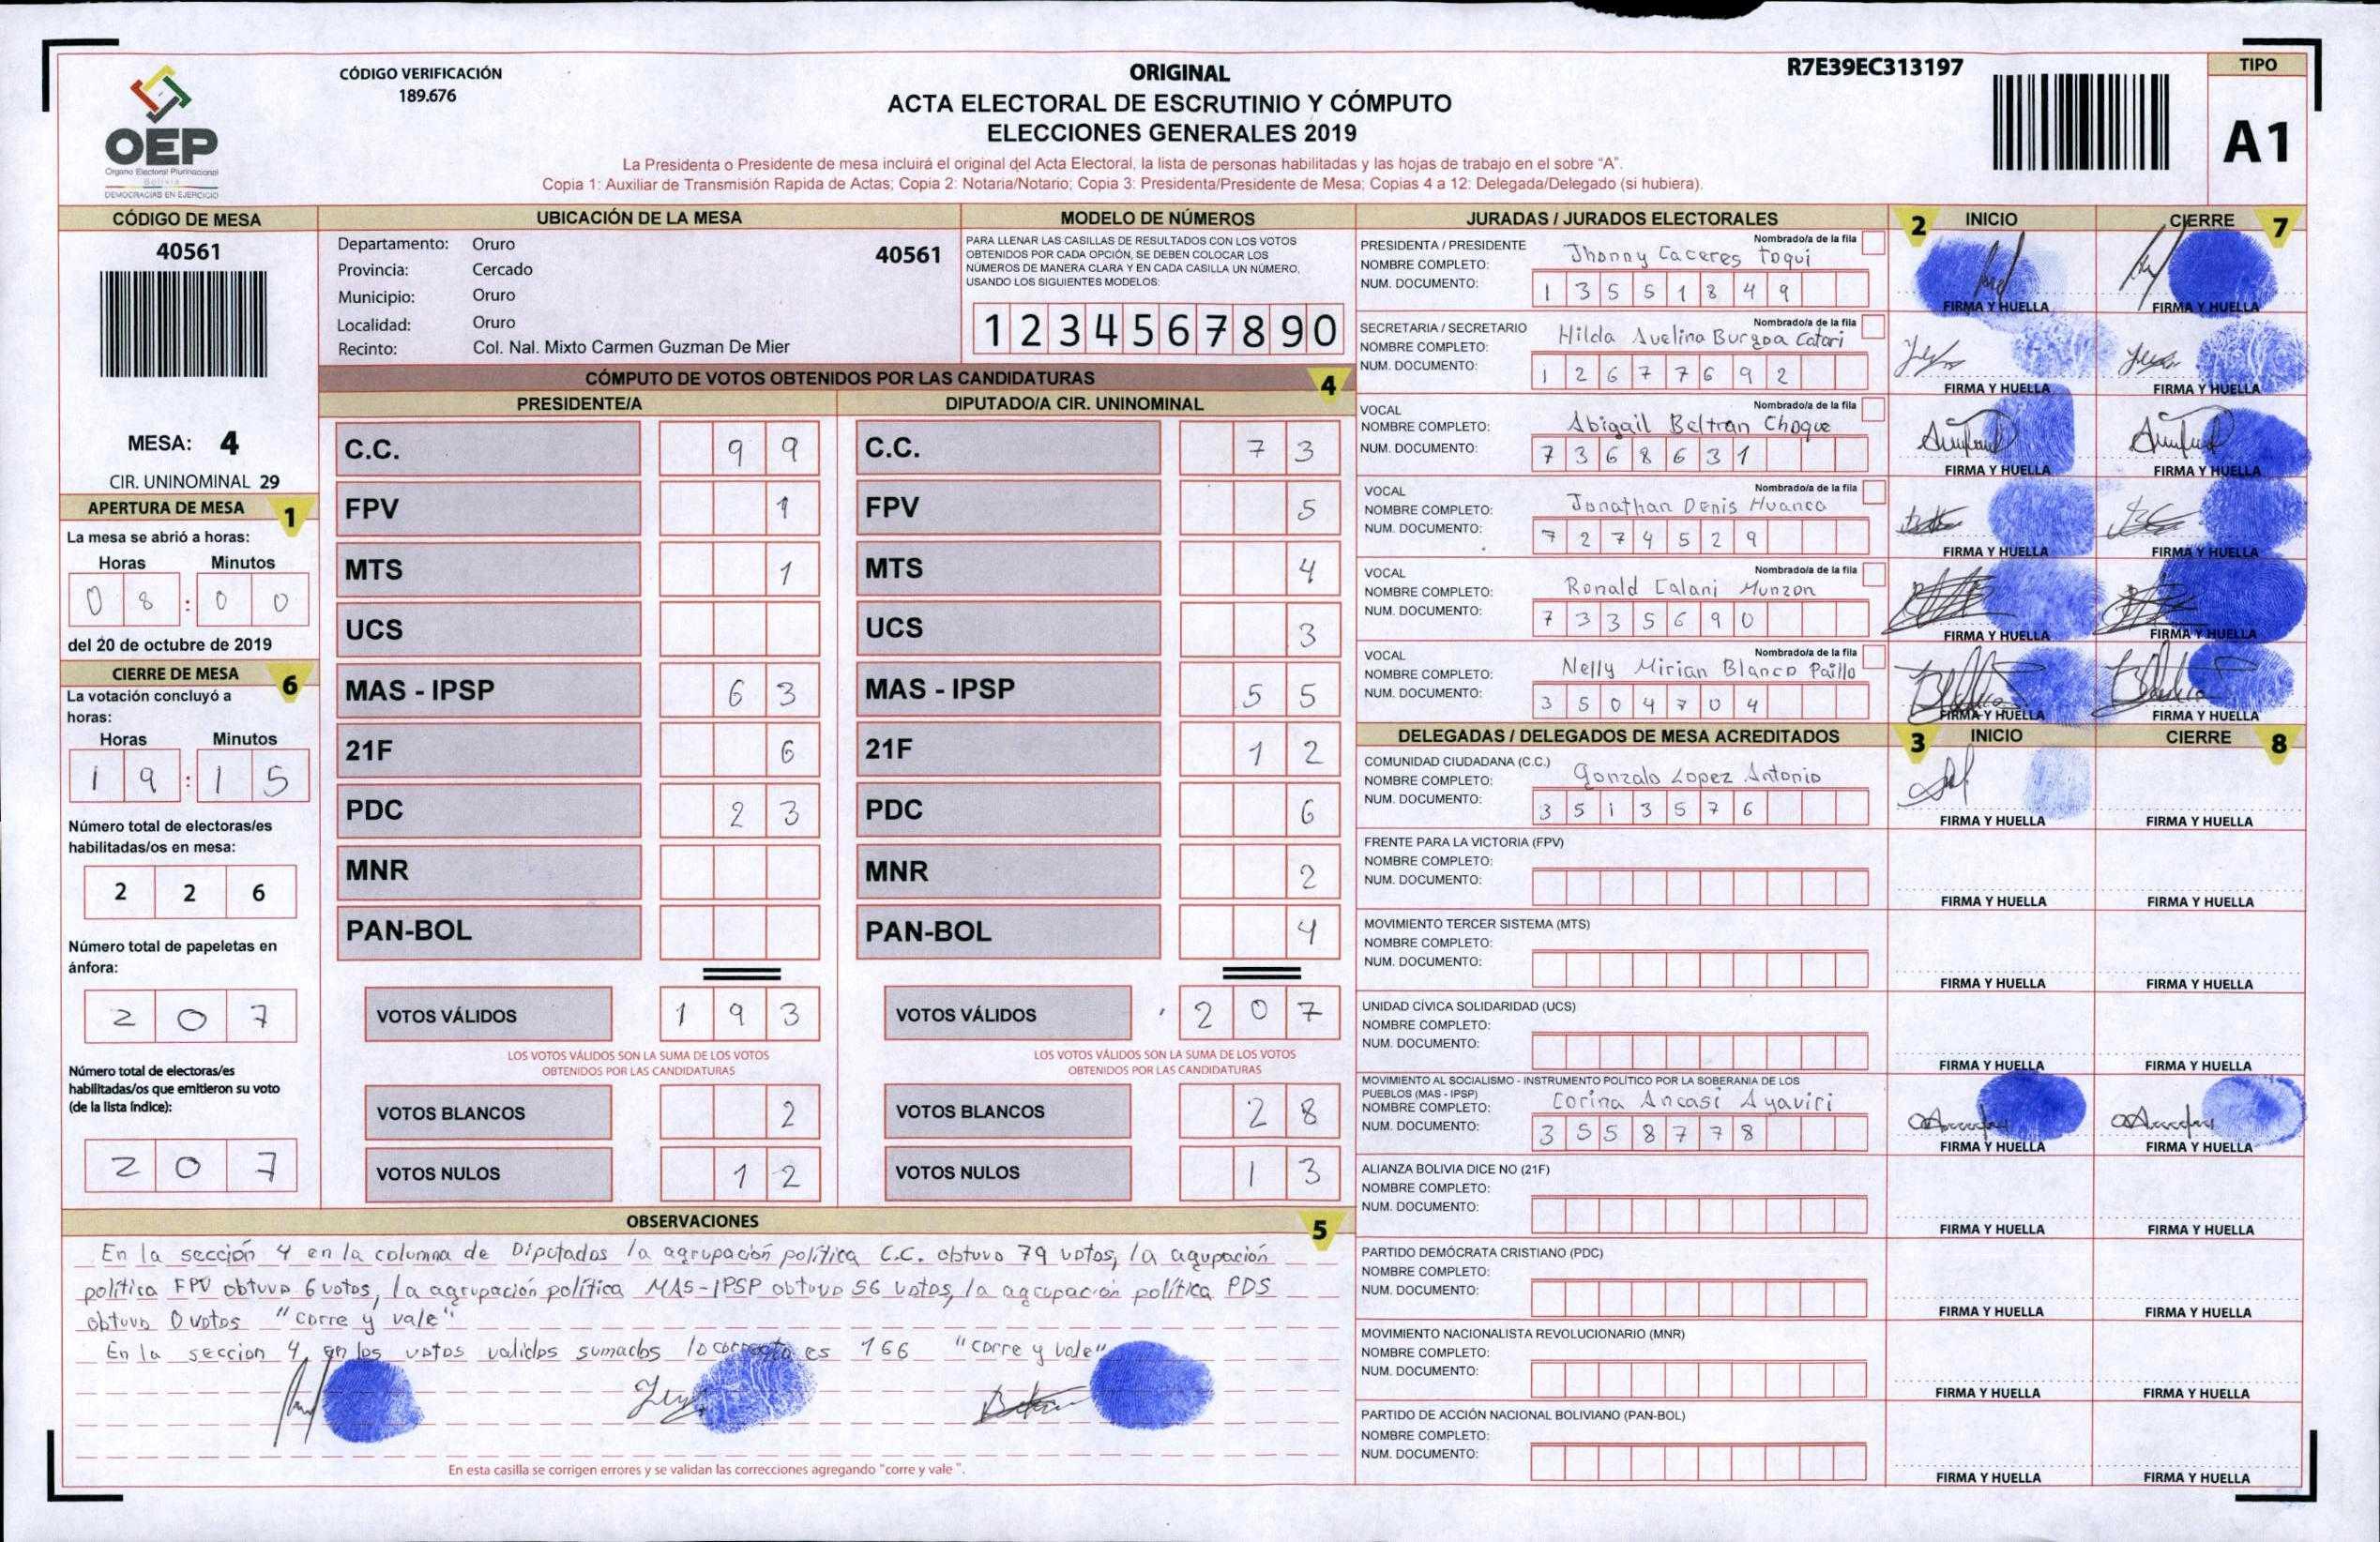 CÓDIGO VERIFICACIÓN
189.676
ORIGINAL
ACTA ELECTORAL DE ESCRUTINIO Y CÓMPUTO
ELECCIONES GENERALES 2019
La Presidenta o Presidente de mesa incluirá el original del Acta Electoral, la lista de personas habilitadas y las hojas de trabajo en el sobre "A".
Copia 1: Auxiliar de Transmisión Rapida de Actas; Copia 2: Notaria/Notario; Copia 3: Presidenta/Presidente de Mesa; Copias 4 a 12: Delegada/Delegado (si hubiera).
R7E39EC313197
TIPO
A1
OEP
Órgano Electoral Plurinacional
Bolivia
DEMOCRACIAS EN EJERCICIO
CÓDIGO DE MESA
40561
MESA: 4
CIR. UNINOMINAL 29
APERTURA DE MESA 1
La mesa se abrió a horas:
Horas Minutos
0 8 : 0 0
del 20 de octubre de 2019
CIERRE DE MESA 6
La votación concluyó a
horas:
Horas Minutos
1 9 : 1 5
Número total de electoras/es
habilitadas/os en mesa:
2 2 6
Número total de papeletas en
ánfora:
2 0 7
Número total de electoras/es
habilitadas/os que emitieron su voto
(de la lista índice):
2 0 7
UBICACIÓN DE LA MESA
Departamento: Oruro 40561
Provincia: Cercado
Municipio: Oruro
Localidad: Oruro
Recinto: Col. Nal. Mixto Carmen Guzman De Mier
MODELO DE NÚMEROS
PARA LLENAR LAS CASILLAS DE RESULTADOS CON LOS VOTOS
OBTENIDOS POR CADA OPCIÓN, SE DEBEN COLOCAR LOS
NÚMEROS DE MANERA CLARA Y EN CADA CASILLA UN NÚMERO,
USANDO LOS SIGUIENTES MODELOS:
1 2 3 4 5 6 7 8 9 0
CÓMPUTO DE VOTOS OBTENIDOS POR LAS CANDIDATURAS 4
PRESIDENTE/A DIPUTADO/A CIR. UNINOMINAL
C.C. 9 9 C.C. 7 3
FPV 1 FPV 5
MTS 1 MTS 4
UCS UCS 3
MAS - IPSP 6 3 MAS - IPSP 5 5
21F 6 21F 1 2
PDC 2 3 PDC 6
MNR MNR 2
PAN-BOL PAN-BOL 4
VOTOS VÁLIDOS 1 9 3 VOTOS VÁLIDOS 2 0 7
LOS VOTOS VÁLIDOS SON LA SUMA DE LOS VOTOS LOS VOTOS VÁLIDOS SON LA SUMA DE LOS VOTOS
OBTENIDOS POR LAS CANDIDATURAS OBTENIDOS POR LAS CANDIDATURAS
VOTOS BLANCOS 2 VOTOS BLANCOS 2 8
VOTOS NULOS 1 2 VOTOS NULOS 1 3
OBSERVACIONES 5
En la sección 4 en la columna de Diputados la agrupación política C.C. obtuvo 79 votos, la agupación
política FPV obtuvo 6 votos, la agrupación política MAS-IPSP obtuvo 56 votos, la agrupación política PDS
obtuvo 0 votos "corre y vale"
En la seccion 4, en los votos validos sumados lo correcto es 166 "corre y vale"
En esta casilla se corrigen errores y se validan las correcciones agregando "corre y vale ".
JURADAS / JURADOS ELECTORALES 2 INICIO CIERRE 7
PRESIDENTA / PRESIDENTE Nombrado/a de la fila
NOMBRE COMPLETO: Jhonny Caceres Toqui
NUM. DOCUMENTO: 1 3 5 5 1 8 4 9
FIRMA Y HUELLA FIRMA Y HUELLA
SECRETARIA / SECRETARIO Nombrado/a de la fila
NOMBRE COMPLETO: Hilda Avelina Burgoa Catari
NUM. DOCUMENTO: 1 2 6 7 7 6 9 2
FIRMA Y HUELLA FIRMA Y HUELLA
VOCAL Nombrado/a de la fila
NOMBRE COMPLETO: Abigail Beltran Choque
NUM. DOCUMENTO: 7 3 6 8 6 3 1
FIRMA Y HUELLA FIRMA Y HUELLA
VOCAL Nombrado/a de la fila
NOMBRE COMPLETO: Jonathan Denis Huanca
NUM. DOCUMENTO: 7 2 7 4 5 2 9
FIRMA Y HUELLA FIRMA Y HUELLA
VOCAL Nombrado/a de la fila
NOMBRE COMPLETO: Ronald Calani Munzon
NUM. DOCUMENTO: 7 3 3 5 6 9 0
FIRMA Y HUELLA FIRMA Y HUELLA
VOCAL Nombrado/a de la fila
NOMBRE COMPLETO: Nelly Mirian Blanco Paillo
NUM. DOCUMENTO: 3 5 0 4 7 0 4
FIRMA Y HUELLA FIRMA Y HUELLA
DELEGADAS / DELEGADOS DE MESA ACREDITADOS 3 INICIO CIERRE 8
COMUNIDAD CIUDADANA (C.C.)
NOMBRE COMPLETO: Gonzalo Lopez Antonio
NUM. DOCUMENTO: 3 5 1 3 5 7 6
FIRMA Y HUELLA FIRMA Y HUELLA
FRENTE PARA LA VICTORIA (FPV)
NOMBRE COMPLETO:
NUM. DOCUMENTO:
FIRMA Y HUELLA FIRMA Y HUELLA
MOVIMIENTO TERCER SISTEMA (MTS)
NOMBRE COMPLETO:
NUM. DOCUMENTO:
FIRMA Y HUELLA FIRMA Y HUELLA
UNIDAD CÍVICA SOLIDARIDAD (UCS)
NOMBRE COMPLETO:
NUM. DOCUMENTO:
FIRMA Y HUELLA FIRMA Y HUELLA
MOVIMIENTO AL SOCIALISMO - INSTRUMENTO POLÍTICO POR LA SOBERANIA DE LOS
PUEBLOS (MAS - IPSP)
NOMBRE COMPLETO: Corina Ancasi Ayaviri
NUM. DOCUMENTO: 3 5 5 8 7 7 8
FIRMA Y HUELLA FIRMA Y HUELLA
ALIANZA BOLIVIA DICE NO (21F)
NOMBRE COMPLETO:
NUM. DOCUMENTO:
FIRMA Y HUELLA FIRMA Y HUELLA
PARTIDO DEMÓCRATA CRISTIANO (PDC)
NOMBRE COMPLETO:
NUM. DOCUMENTO:
FIRMA Y HUELLA FIRMA Y HUELLA
MOVIMIENTO NACIONALISTA REVOLUCIONARIO (MNR)
NOMBRE COMPLETO:
NUM. DOCUMENTO:
FIRMA Y HUELLA FIRMA Y HUELLA
PARTIDO DE ACCIÓN NACIONAL BOLIVIANO (PAN-BOL)
NOMBRE COMPLETO:
NUM. DOCUMENTO:
FIRMA Y HUELLA FIRMA Y HUELLA